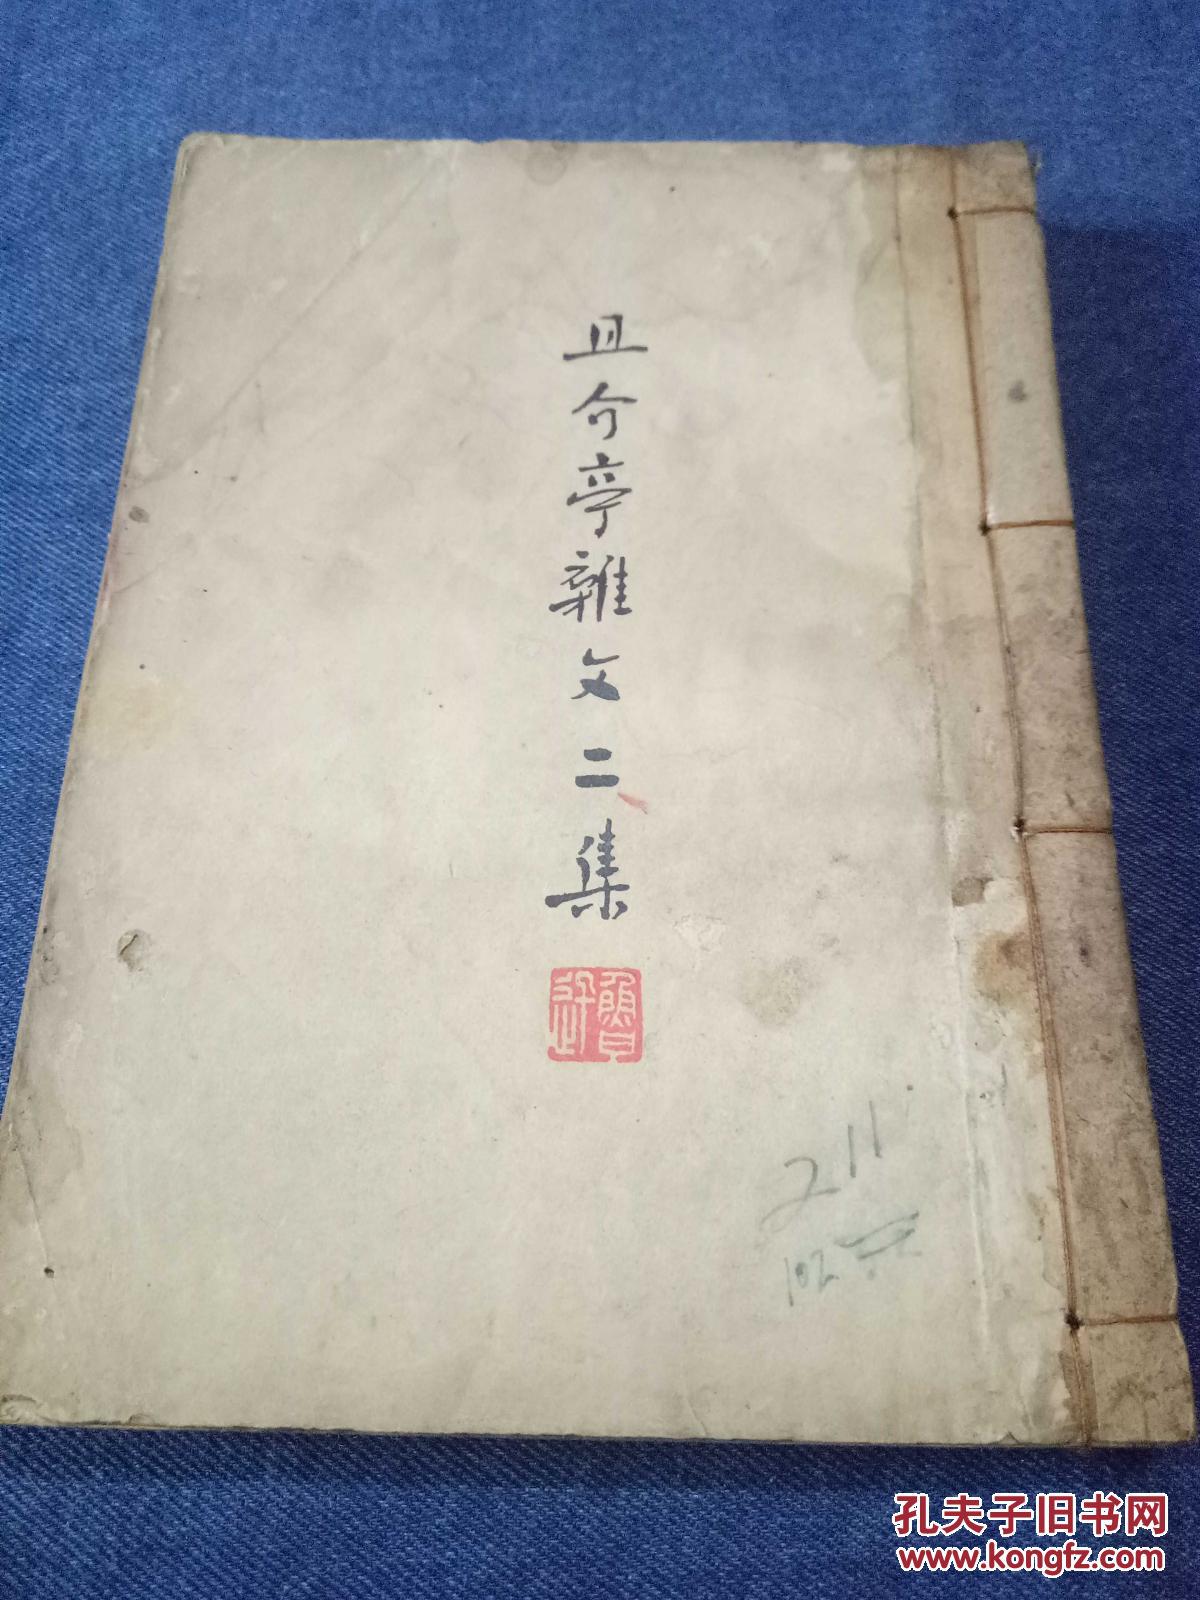 且介亭雜文二集
魯迅
211
102
孔夫子旧书网
www.kongfz.com